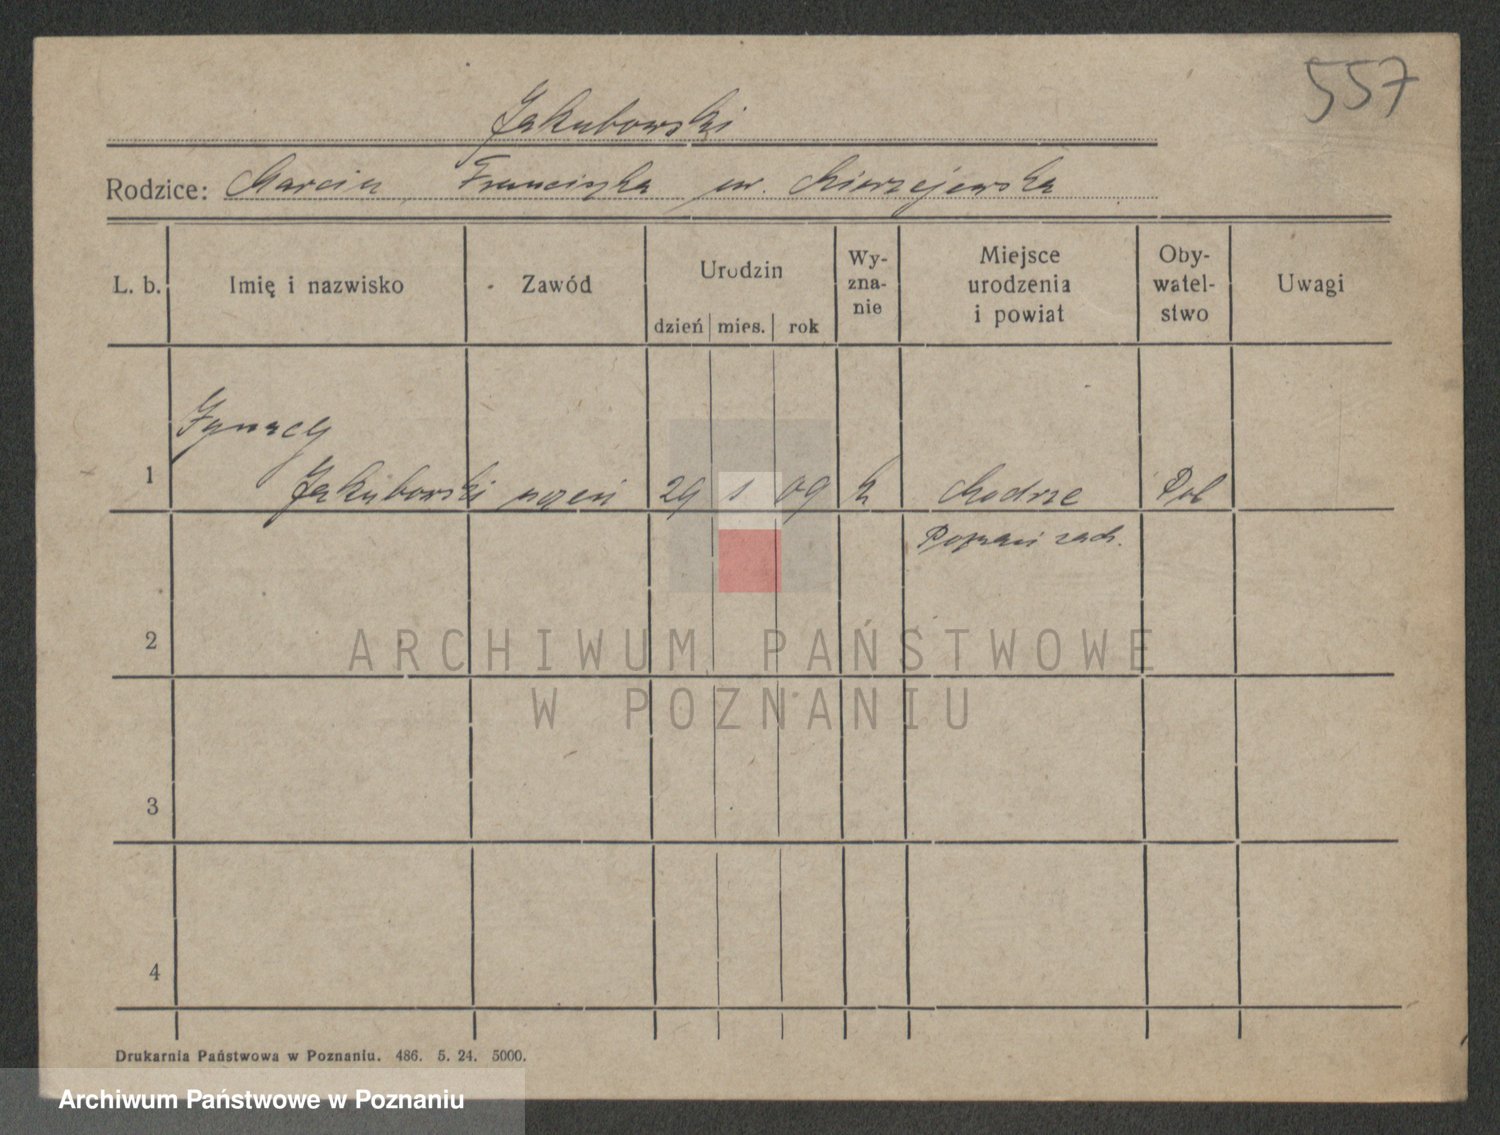 557
Jakubowski
Rodzice: Marcin Franciszka ur. Mierzejewska
L. b. Imię i nazwisko Zawód Urodzin dzień mies. rok Wy-zna-nie Miejsce urodzenia i powiat Oby-watel-stwo Uwagi
Ignacy
1 Jakubowski uczeń 29 1 09 k Modrze Pol
Poznań zach.
2
3
4
ARCHIWUM PAŃSTWOWE
W POZNANIU
Drukarnia Państwowa w Poznaniu. 486. 5. 24. 5000.
Archiwum Państwowe w Poznaniu